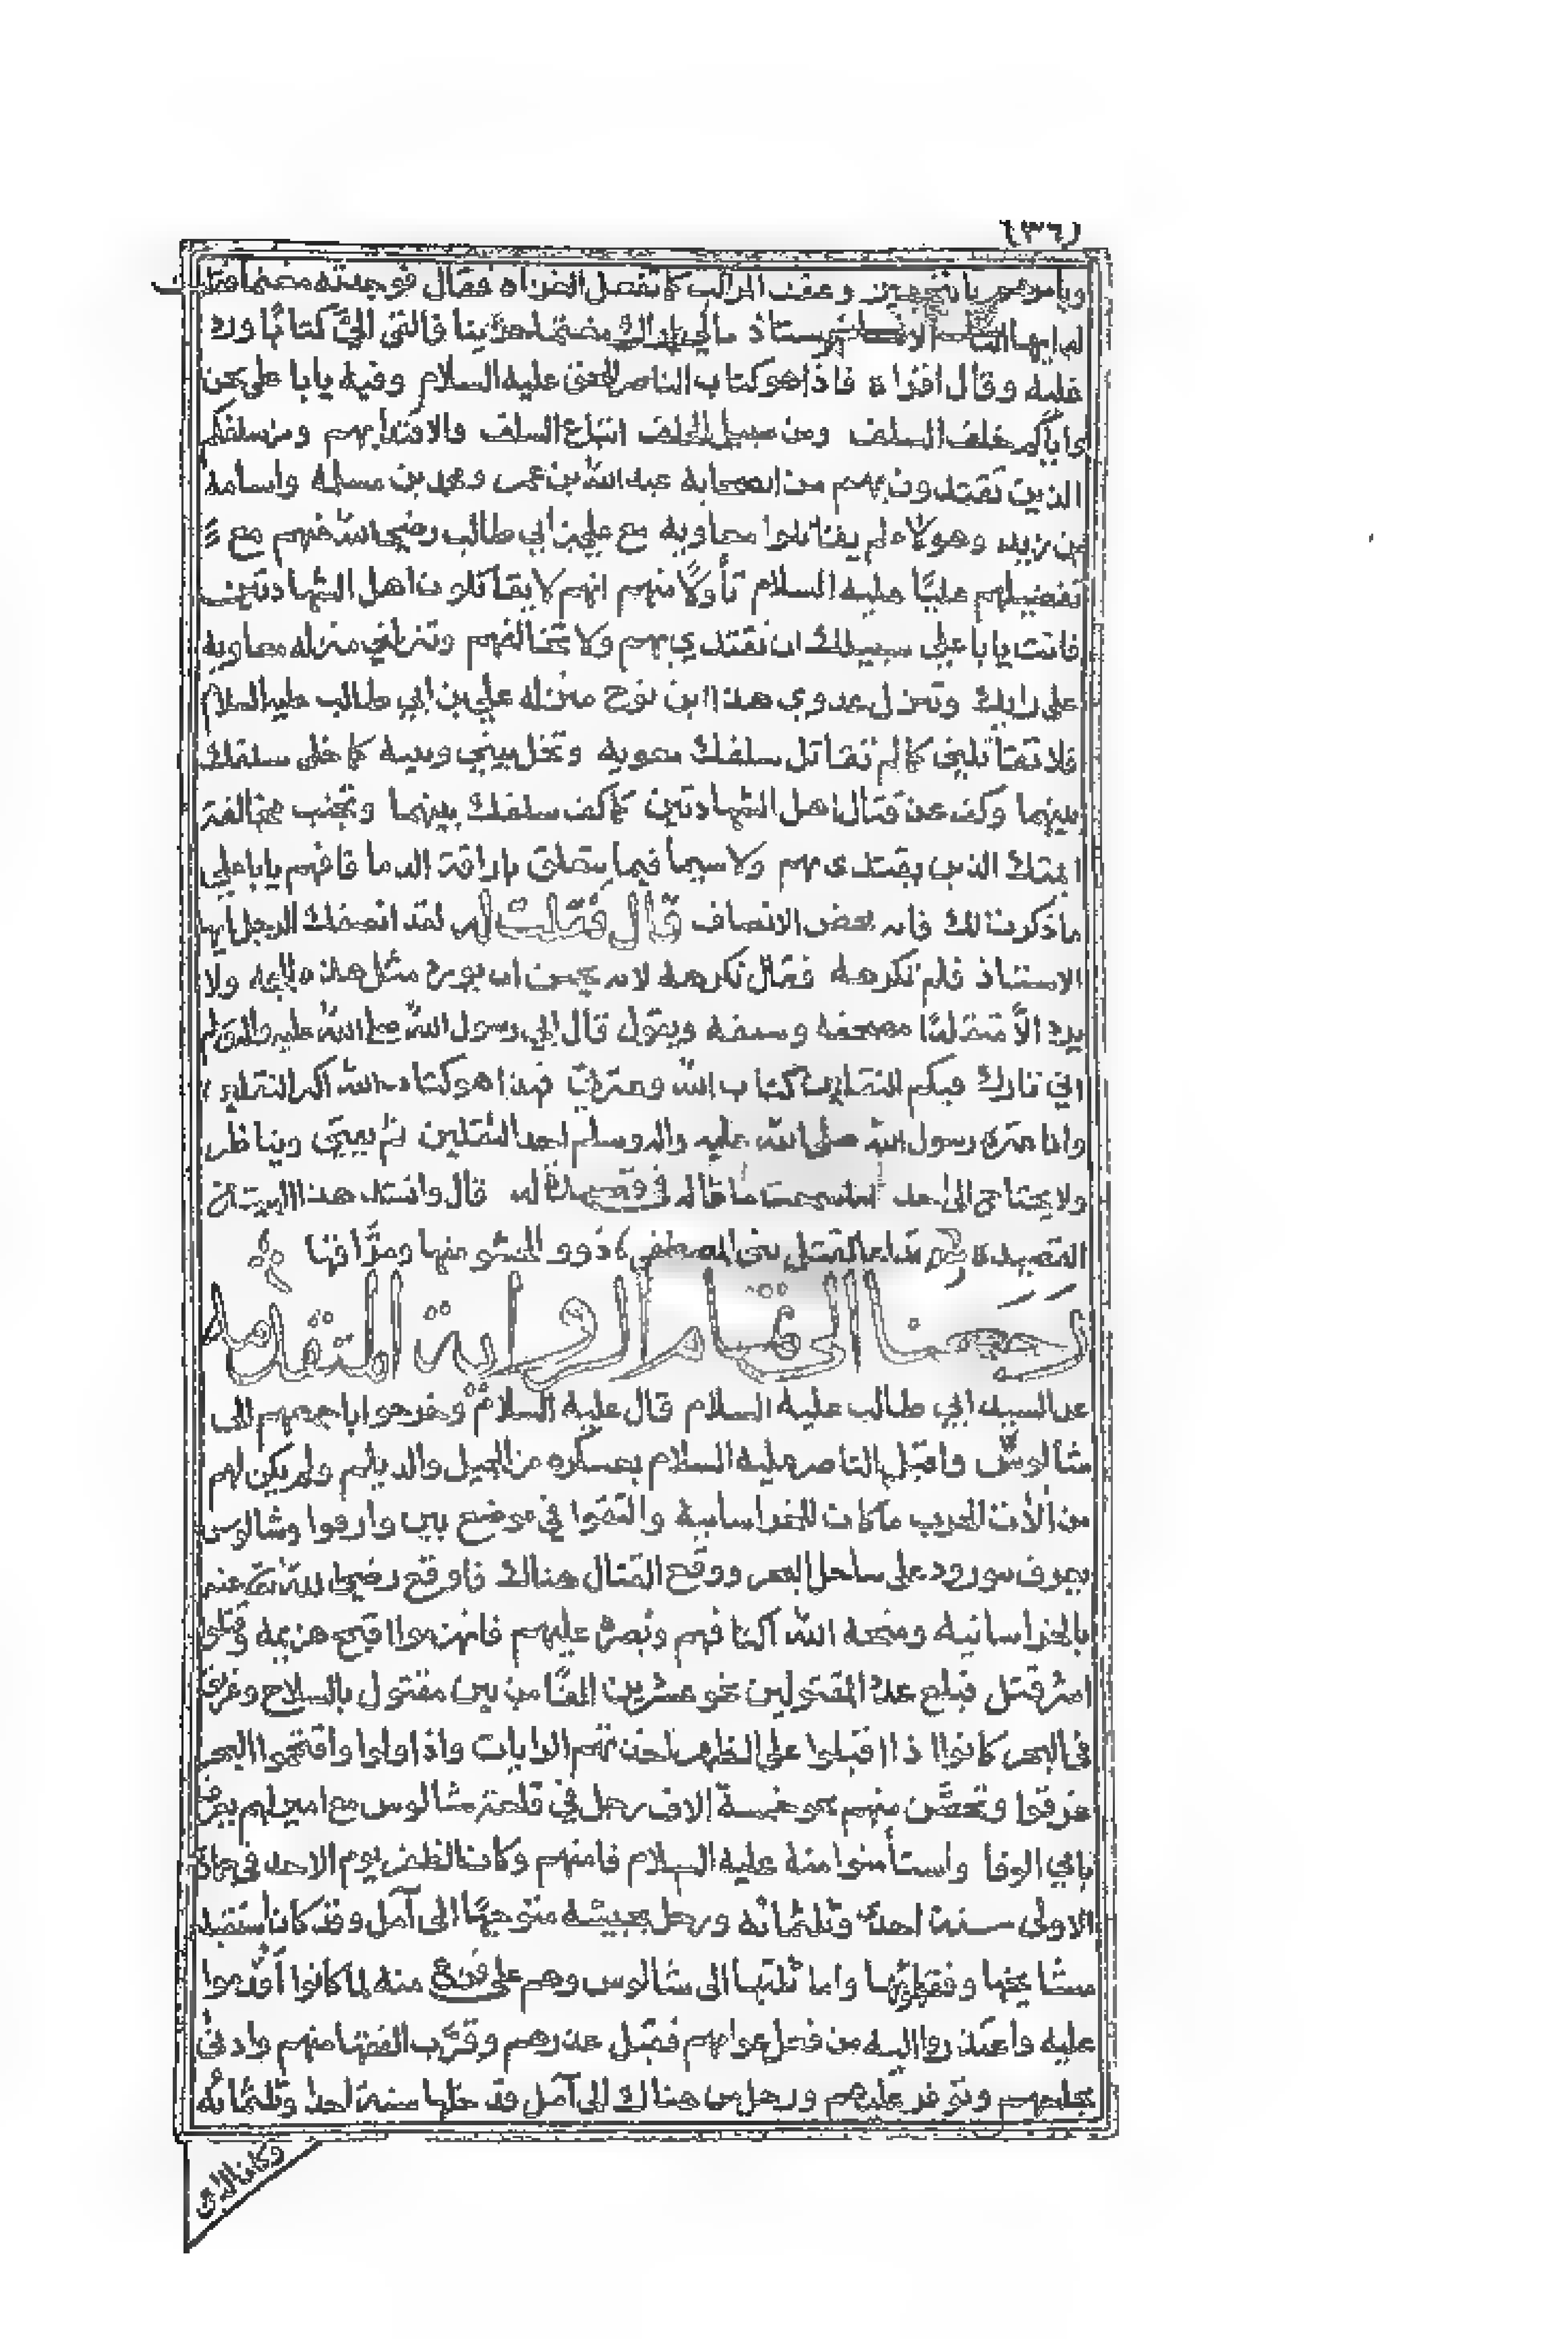 (٣٦)
ويأمرهم بانتجهين وعقد المراتب كما تفعل الغزاه فقال فوجدته مغتما فقلت
ايها الاستاذ مالي اراك مغتما حزينا فالقى اليّ كتابًا ورد
عليه وقال اقراه فاذا هو كتاب الناصر للحق عليه السلام وفيه يابا علي نحن
واياكم خلف السلف ومن سبيل الخلف اتباع السلف والاقتدا بهم ومن سلفكم
الذين تقتدون بهم من الصحابة عبد الله بن عمر ومحمد بن مسلمه واسامة
بن زيد وهولاء لم يقاتلوا معاويه مع علي بن ابي طالب رضي الله عنهم مع
تفضيلهم عليًا عليه السلام تأولاً منهم انهم لا يقاتلون اهل الشهادتين
فانت يابا علي سبيلك ان تقتدي بهم ولا تخالفهم وتنزلني منزله معاويه
على رايك وتنزل عدوي هذا ابن نوح منزله علي بن ابي طالب عليه السلام
فلا تقاتلني كما لم تقاتل سلفك معويه وتخل بيني وبينه كما خلى سلفك
بينهما وكف عن قتال اهل الشهادتين كما كف سلفك بينهما وتجنب مخالفة
ائمتك الذين يقتدى بهم ولا سيما فيما يتعلق باراقة الدما فافهم يابا علي
ما ذكرت لك فانه محض الانصاف قال فقلت له لقد انصفك الرجل ايها
الاستاذ فلم تكرهه فقال نكرهه لانه يحسن ان يورد مثل هذه ولا
يرد الاّ متقلدًا مصحفه وسيفه ويقول قال ابي رسول الله صلى الله عليه واله وسلم
اني تارك فيكم الثقلين كتاب الله وعترتي فهذا هو كتاب الله اكبر الثقلين
وانا عترة رسول الله صلى الله عليه واله وسلم احد الثقلين ثم يفتي ويناظر
ولا يحتاج الى احد قال وانشد هذا
القصيدة
رجعنا الى تمام الرواية المتقدمه
عن السيد ابي طالب عليه السلام قال عليه السلام وخرجوا باجمعهم الى
شالوس واقبل الناصر عليه السلام بعسكره من الجيل والديلم ولم يكن لهم
من ألات الحرب ما كان للخراسانية والتقوا في موضع بين وارفوا وشالوس
يعرف بورود على ساحل البحر ووقع القتال هناك فاوقع رضي الله تعالى عنه
بالخراسانيه ومنحه الله اكتافهم ونصره عليهم فانهزموا اقبح هزيمه وقتلوا
اشر قتل فبلغ عدد المقتولين نحو عشرين الفًا من بين مقتول بالسلاح وغريق
في البحر كانوا اذا اقبلوا على الظهر اخذتهم الرايات واذا ولوا واقتحموا البحر
غرقوا وتحصّن منهم نحو خمسة الاف رجل في قلعة شالوس مع اميرلهم يعرف
بابي الوفا واستأمنوا منه عليه السلام فامنهم وكان الظفر يوم الاحد في جماد
الاولى سنة احدى وثلثمائه ورحل بجيشه متوجهًا الى آمل وقد كان استقبله
مشايخها وفقهاؤها واماثلها الى شالوس وهم على فزع منه لما كانوا اقدموا
عليه واعتذروا اليه من فعل عوامهم فقبل عذرهم وقرّب الفقها منهم وادنى
مجلسهم وتوفر عليهم ورحل من هناك الى آمل ودخلها سنة احدا وثلثمائه
وكان الذي